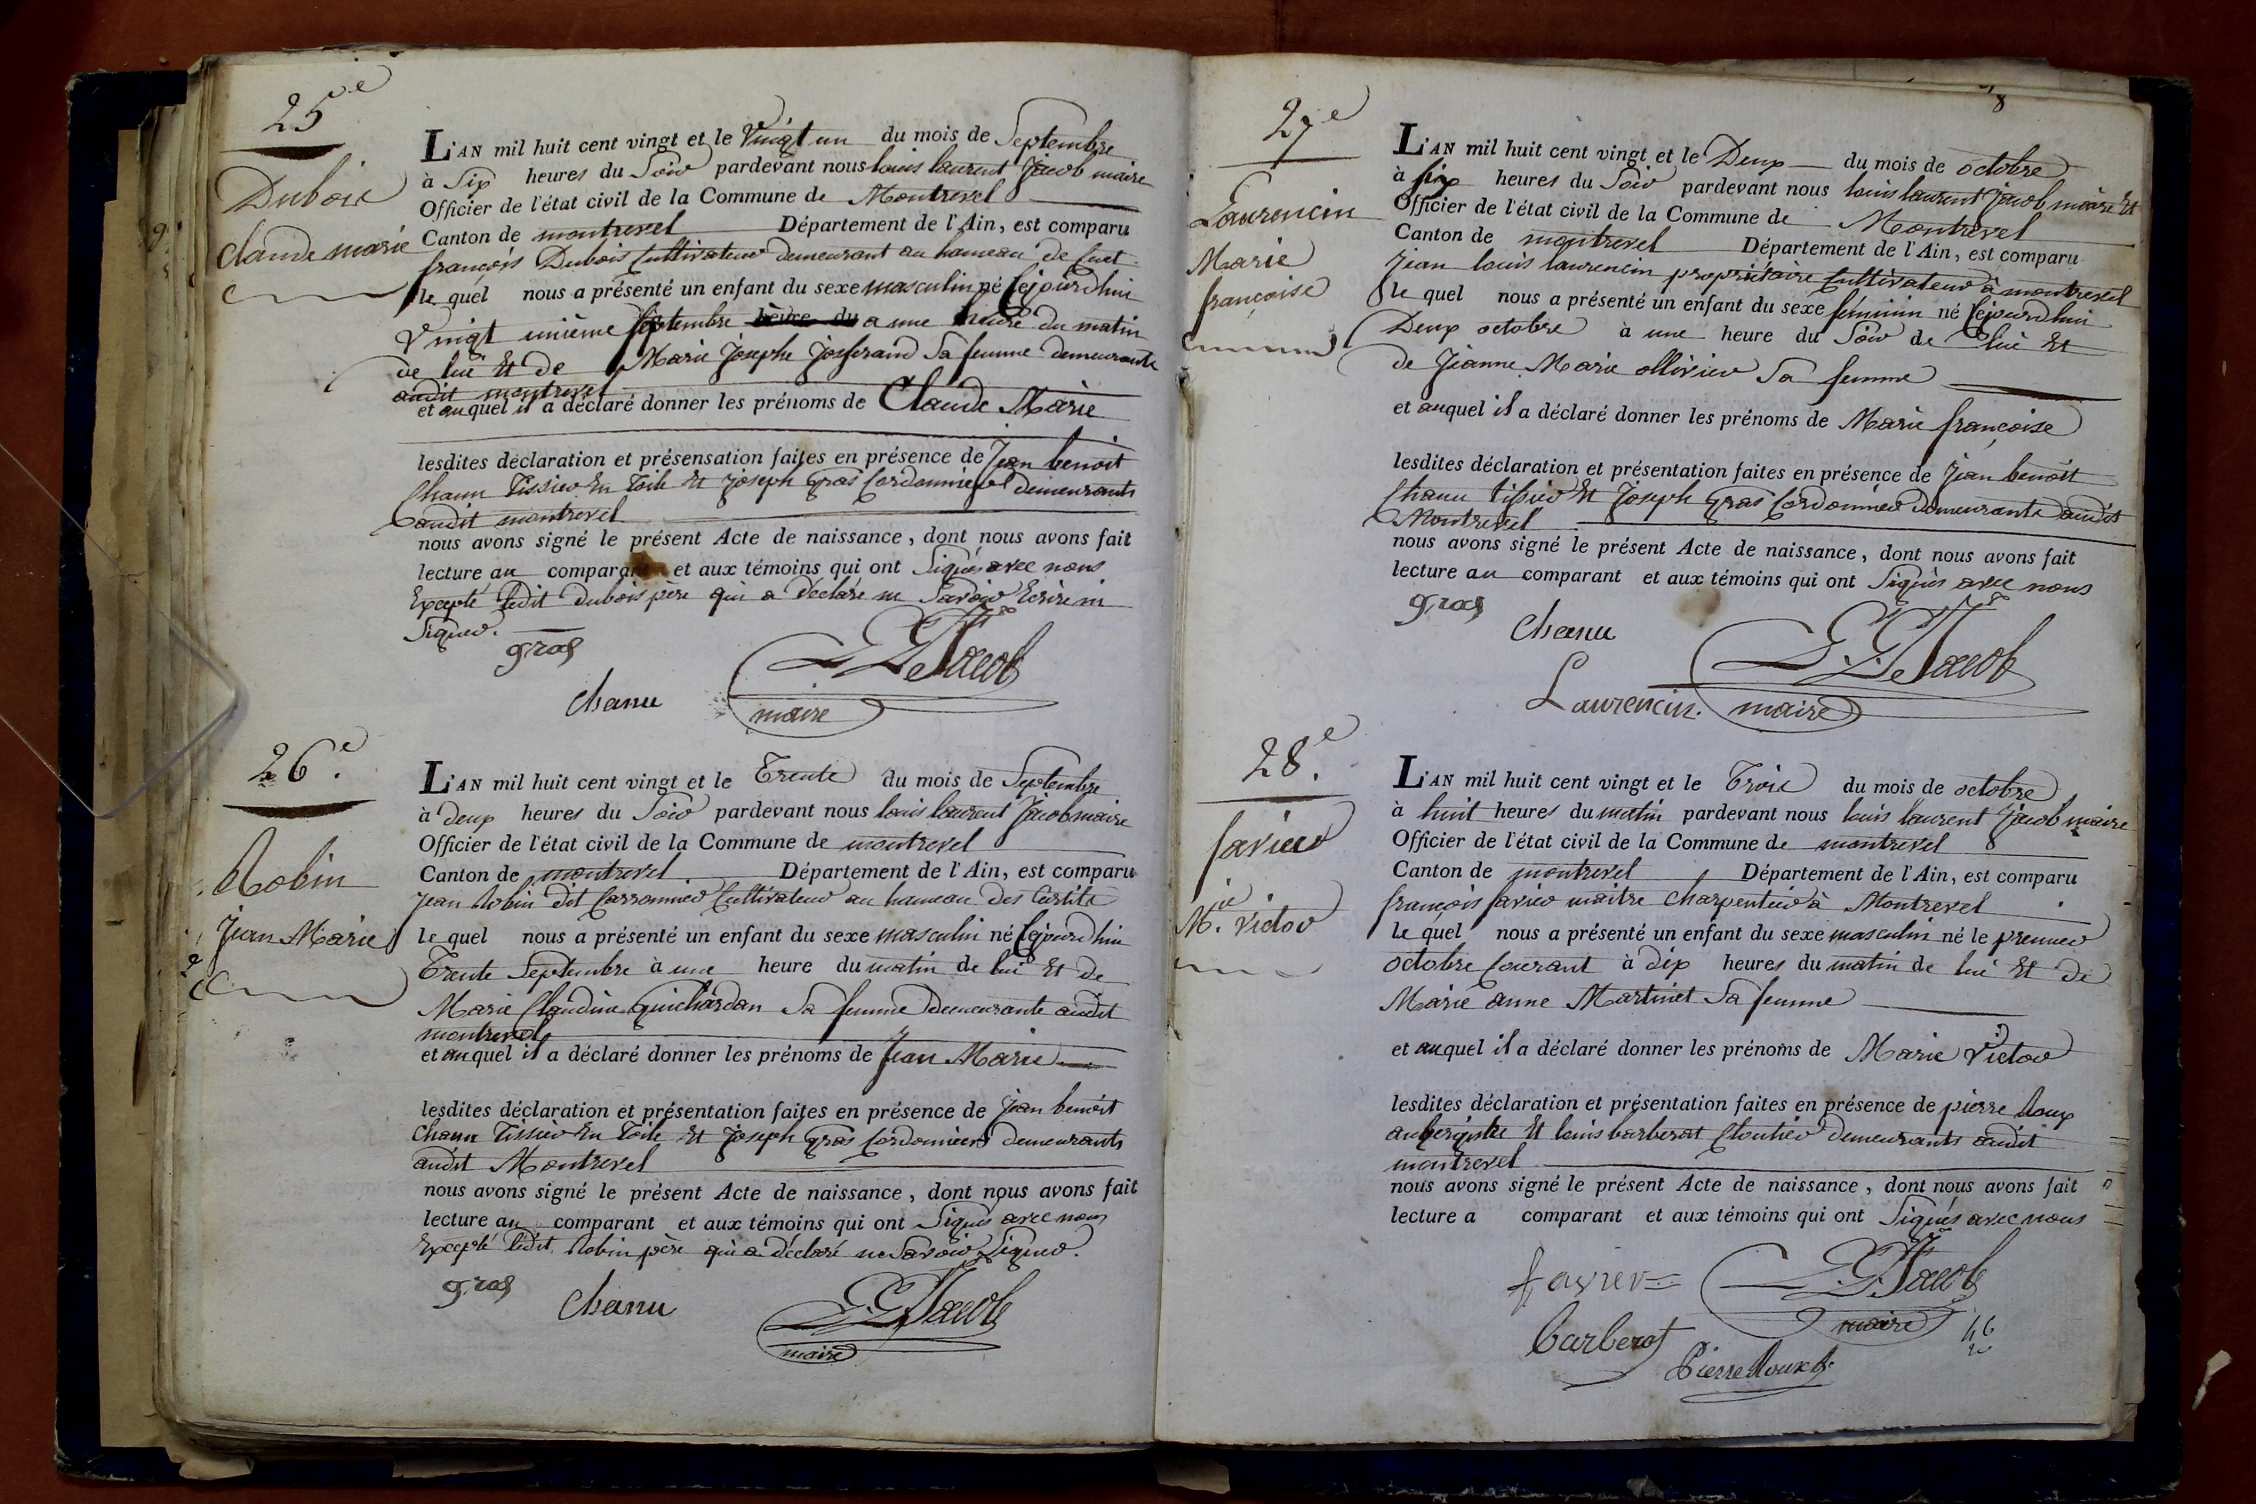 25e
Dubois
Claude marie
L'AN mil huit cent vingt et le Vingt un du mois de Septembre
à Six heures du Soir pardevant nous louis laurent Jacob maire
Officier de l'état civil de la Commune de Montrevel
Canton de montrevel Département de l'Ain, est comparu
françois Dubois Cultivateur demeurant au hameau de Cuet
le quel nous a présenté un enfant du sexe masculin né Cejourd'hui
Vingt unième Septembre heure du a une heure du matin
de lui Et de Marie Josephe Josserand Sa femme demeurante
audit montrevel
et au quel il a déclaré donner les prénoms de Claude Marie
lesdites déclaration et présensation faites en présence de Jean benoit
Chanu Tissier En Toile Et Joseph Gras Cordonnier demeurants
audit montrevel
nous avons signé le présent Acte de naissance, dont nous avons fait
lecture au comparant et aux témoins qui ont Signés avec nous
Excepté ledit dubois père qui a déclaré ne Savoir Ecrire ni
Signer.
gras
Chanu
L. L. Jacob
maire
26e.
Robin
Jean Marie
L'AN mil huit cent vingt et le Trente du mois de Septembre
à deux heures du Soir pardevant nous louis laurent Jacob maire
Officier de l'état civil de la Commune de montrevel
Canton de montrevel Département de l'Ain, est comparu
Jean Robin dit Carronnier Cultivateur au hameau des Curtils
le quel nous a présenté un enfant du sexe masculin né Cejourd'hui
Trente Septembre à une heure du matin de lui Et de
Marie Claudine Guichardan Sa femme demeurante audit
montrevel
et au quel il a déclaré donner les prénoms de Jean Marie
lesdites déclaration et présentation faites en présence de Jean benoit
Chanu Tissier En Toile Et Joseph Gras Cordonnier demeurants
audit Montrevel
nous avons signé le présent Acte de naissance, dont nous avons fait
lecture au comparant et aux témoins qui ont Signés avec nous
Excepté ledit Robin père qui a déclaré ne Savoir Signer.
gras
Chanu
L. L. Jacob
maire
8
27e
Laurencin
Marie
françoise
L'AN mil huit cent vingt et le Deux du mois de octobre
à six heures du Soir pardevant nous louis laurent Jacob maire Et
Officier de l'état civil de la Commune de Montrevel
Canton de montrevel Département de l'Ain, est comparu
Jean louis laurencin propriétaire Cultivateur à montrevel
le quel nous a présenté un enfant du sexe féminin né Cejourd'hui
Deux octobre à une heure du Soir de lui Et
de Jeanne Marie ollivier Sa femme
et auquel il a déclaré donner les prénoms de Marie françoise
lesdites déclaration et présentation faites en présence de Jean benoit
Chanu tissier Et Joseph Gras Cordonnier demeurants audit
Montrevel
nous avons signé le présent Acte de naissance, dont nous avons fait
lecture au comparant et aux témoins qui ont Signés avec nous
gras
Chanu
L. L. Jacob
Laurencin.
maire
28e.
favier
Mie. Victor
L'AN mil huit cent vingt et le Trois du mois de octobre
à huit heures du matin pardevant nous louis laurent Jacob maire
Officier de l'état civil de la Commune de montrevel
Canton de montrevel Département de l'Ain, est comparu
françois favier maitre Charpentier à Montrevel
le quel nous a présenté un enfant du sexe masculin né le premier
octobre Courant à dix heures du matin de lui Et de
Marie anne Martinet Sa femme
et auquel il a déclaré donner les prénoms de Marie Victor
lesdites déclaration et présentation faites en présence de pierre Roux
aubergiste Et louis barberot Cloutier demeurants audit
montrevel
nous avons signé le présent Acte de naissance, dont nous avons fait
lecture a comparant et aux témoins qui ont Signés avec nous
favier
L. L. Jacob
maire
barberot
Pierre Roux